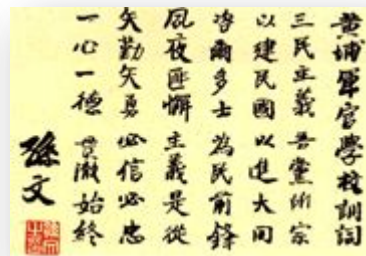 黄埔軍官學校訓詞
三民主義 吾黨所宗
以建民國 以進大同
咨爾多士 為民前鋒
夙夜匪懈 主義是從
矢勤矢勇 必信必忠
一心一德 貫澈始終
孫文